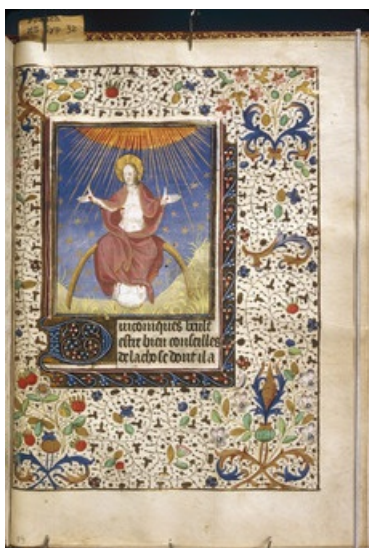 uiconiques veult
estre bien conseilles
de la chose dont il a